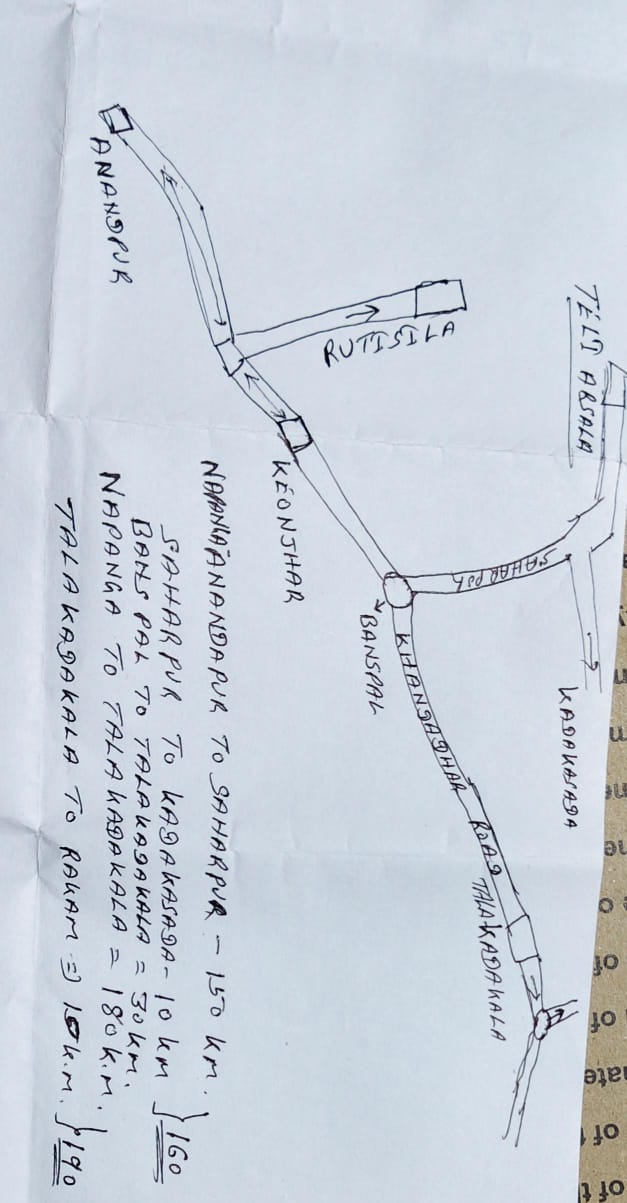 TELI ARSALA
KADAKASADA
SAHARPUR
RUTISILA
ANANDPUR
KEONJHAR
BANSPAL
KHANDADHAR ROAD
TALAKADAKALA
ANANDAPUR TO SAHARPUR - 150 KM.
SAHARPUR TO KADAKASADA - 10 KM } 160
BANSPAL TO TALAKADAKALA = 30 KM.
NAPANGA TO TALAKADAKALA = 180 K.M.
TALAKADAKALA TO RAKAM => 10 K.M. } 190